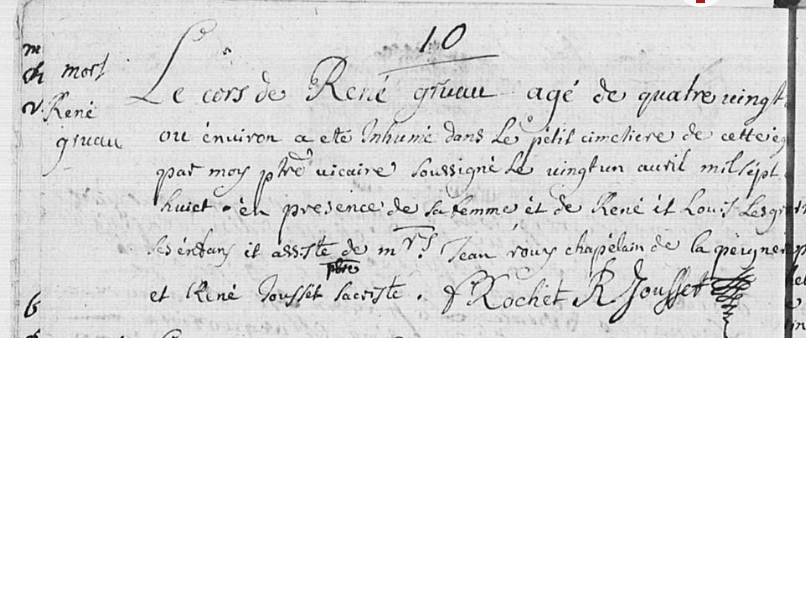 10
mort
René
gruau
Le cors de René gruau agé de quatre vingt
ou énviron a eté Inhumé dans Le pétit cimetiere de cette eg
par moy ptre vicaire soussigné Le vingtun auril mil sépt
huict . én presence de sa femme ét de René ét Louis Les gru
ses énfans ét assisté de mrs Jean rouy chapélain de la péigner
ptre
et René Jousset sacriste . f Rochet R Jousset